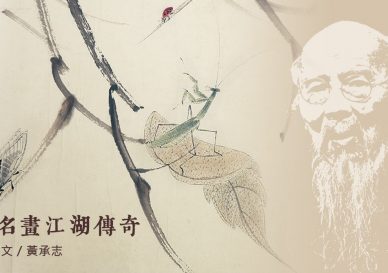 名畫江湖傳奇
文 / 黃承志